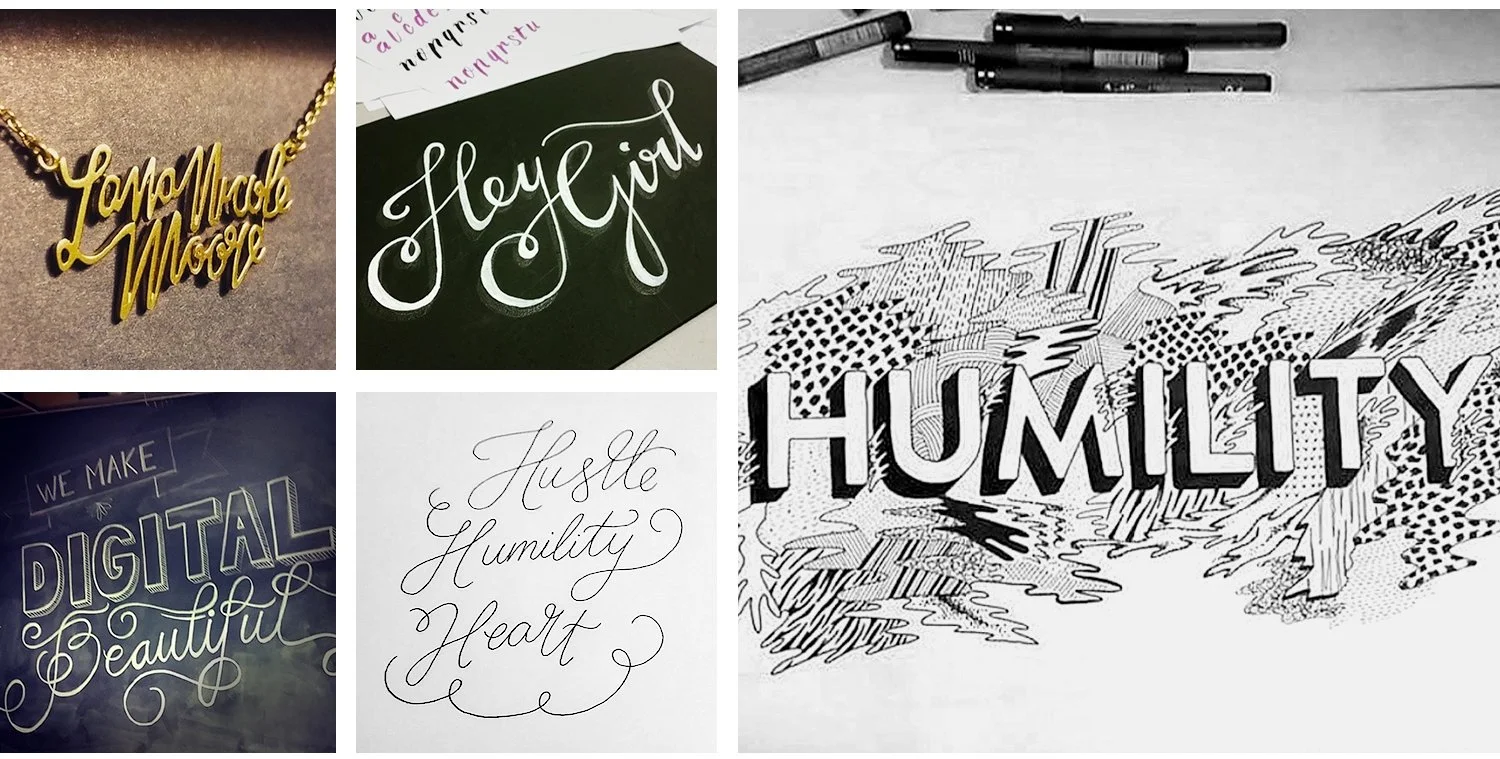 Lana Nicole
Moore
a c
a b c d e
n o p q r s t
n o p q r s t u
Hey Girl
WE MAKE
DIGITAL
Beautiful
Hustle
Humility
Heart
HUMILITY